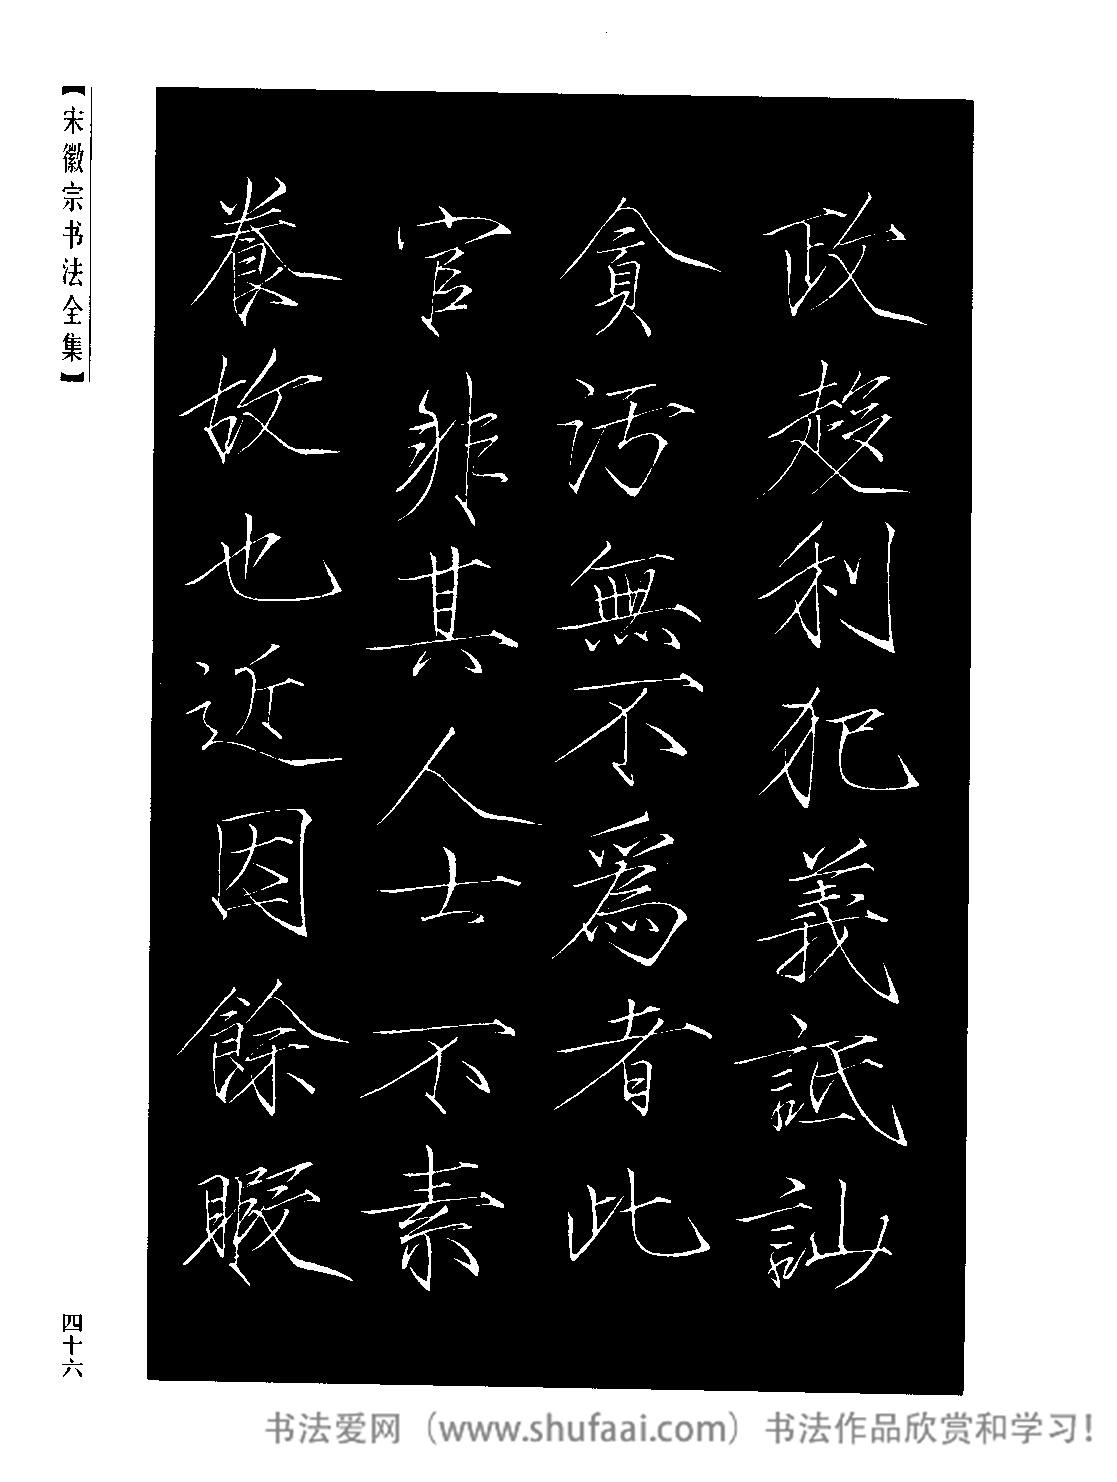 【宋徽宗书法全集】
政趍利犯義詆訕
貪污無不爲者此
官非其人士不素
養故也近因餘暇
四十六
书法爱网（www.shufaai.com）书法作品欣赏和学习！